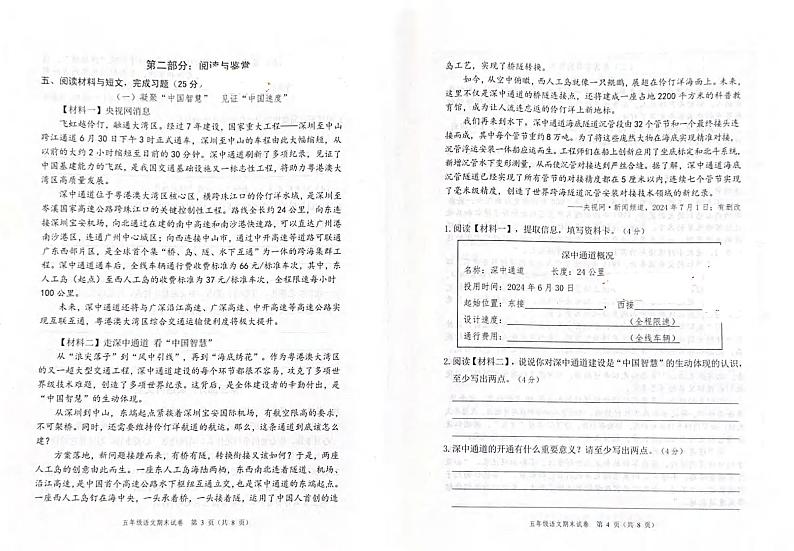 第二部分：阅读与鉴赏
五、阅读材料与短文，完成习题（25分）
（一）凝聚“中国智慧” 见证“中国速度”
【材料一】央视网消息
飞虹越伶仃，融通大湾区。经过7年建设，国家重大工程——深圳至中山
跨江通道6月30日下午3时正式通车，深圳至中山的车程由此大幅缩短，从
以前的大约2小时缩短至目前的30分钟。深中通道刷新了多项纪录，见证了
中国基建能力的飞跃，是我国交通基础设施又一标志性工程，将助力粤港澳大
湾区高质量发展。
深中通道位于粤港澳大湾区核心区，横跨珠江口的伶仃洋水域，是深圳至
岑溪国家高速公路跨珠江口的关键控制性工程。路线全长约24公里，向东连
接深圳宝安机场，向北通过在建的南中高速和南沙港快速路，可以直达广州港
南沙港区，连通广州中心城区；向西连接中山市，通过中开高速等道路可联通
广东西部片区，是全球首个集“桥、岛、隧、水下互通”为一体的跨海集群工
程。深中通道通车后，全线车辆通行费收费标准为66元/标准车次，其中，东
人工岛（起点）至西人工岛的收费标准为37元/标准车次，全程限速每小时
100公里。
未来，深中通道还将与广深沿江高速、广深高速、中开高速等高速公路实
现互联互通，粤港澳大湾区综合交通运输便利度将极大提升。
【材料二】走深中通道 看“中国智慧”
从“浪尖落子”到“风中引线”，再到“海底绣花”。作为粤港澳大湾区
的又一超大型交通工程，深中通道建设的每个环节都很不容易，攻克了多项世
界级技术难题，创造了多项世界纪录。这背后，是全体建设者的辛勤付出，是
“中国智慧”的生动体现。
从深圳到中山，东端起点紧挨着深圳宝安国际机场，有航空限高的要求，
不可架桥。同时，还需要维持伶仃洋航道的航运。那么，这条通道到底该怎么
建？
方案落地，新问题接踵而来，有桥有隧，转换衔接又该如何？于是，两座
人工岛的创意由此而生。一座东人工岛海陆两桥，东西南北连着隧道、机场、
沿江高速，是中国首个水下枢纽互通立交，也是深中通道的东端起点。
一座西人工岛钉在海中央，一头接着桥，一头接着隧，运用了中国人首创的造
五年级语文期末试卷 第3页（共8页）
岛工艺，实现了桥隧转换。
如今，从空中俯瞰，西人工岛就像一只鲲鹏，展翅在伶仃洋海面上。未来，
这里不仅是深中通道的桥隧连接点，还将建成一座占地2200平方米的科普教
育馆，成为让人流连忘返的伶仃洋上新地标。
我们再来到水下。深中通道海底隧道沉管段由32个管节和一个最终接头连
接而成，其中每个管节重约8万吨。为了将这些庞然大物在海底实现精准对接，
沉管浮运安装一体船应运而生。工程师们在船上创新应用了坐底标定和北斗系统，
新增沉管水下变形测量，从而使沉管对接达到严丝合缝。据了解，深中通道海底
沉管隧道已经实现了所有管节的对接精度都在5厘米以内，连续七个管节实现
了毫米级精度，创造了世界跨海隧道沉管安装对接技术领域的新纪录。
——央视网·新闻频道，2024年7月1日；有删改
1.阅读【材料一】，提取信息，填写资料卡。（4分）
深中通道概况
名称：深中通道 长度：24公里
投用时间：2024年6月30日
起始位置：东接 ，西接
设计速度： （全程限速）
通行费用： （全线车辆）
2.阅读【材料二】，说说你对深中通道建设是“中国智慧”的生动体现的认识，
至少写出两点。（4分）
3.深中通道的开通有什么重要意义？请至少写出两点。（4分）
五年级语文期末试卷 第4页（共8页）